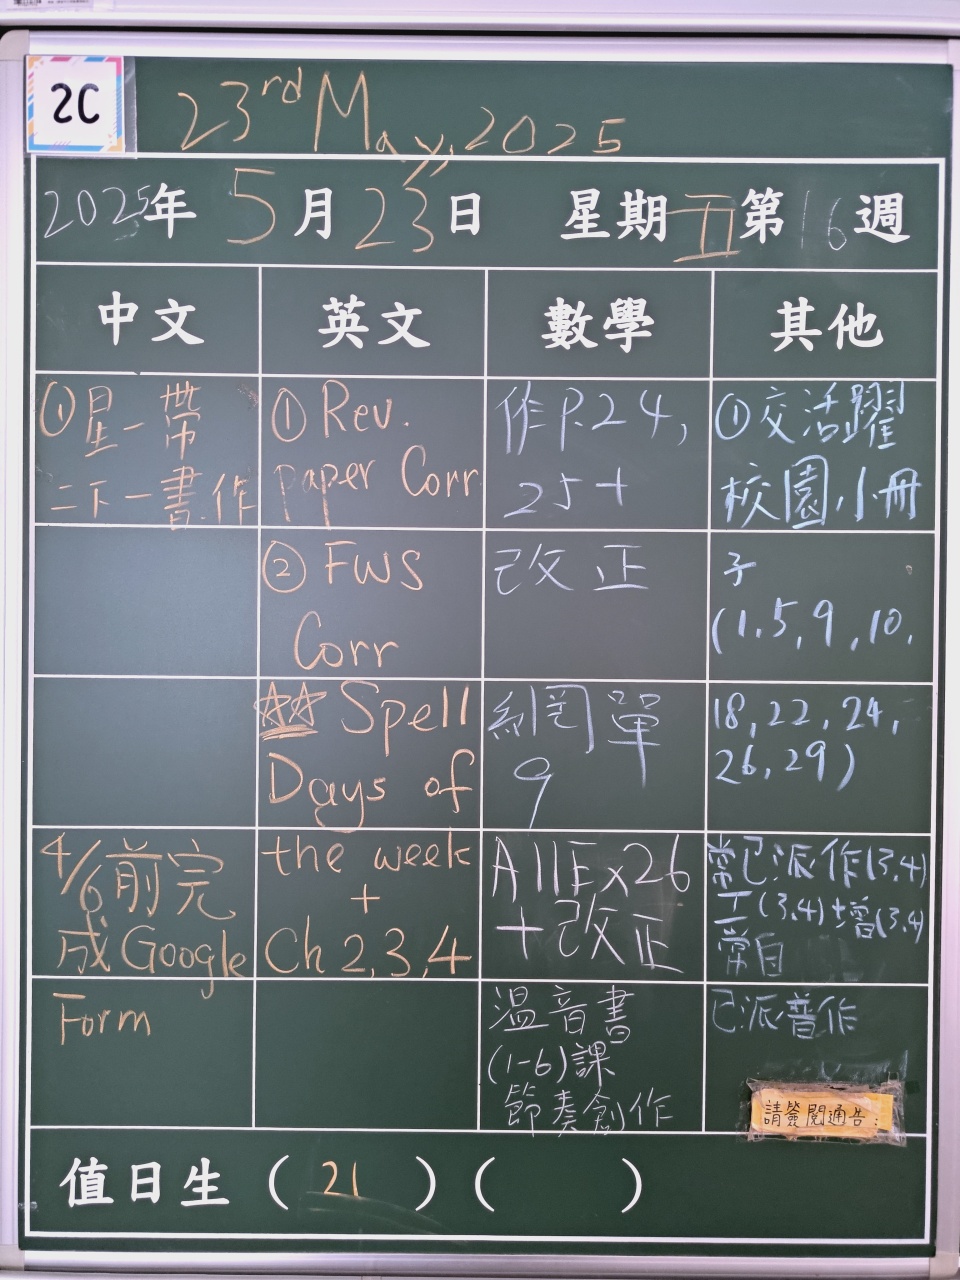 2C
23rd May, 2025
2025年5月23日 星期五第16週
中文 英文 數學 其他
①星一帶
二下一書.作
4/6前完
成Google
Form
① Rev.
paper Corr
② FWS
Corr
☆☆ Spell
Days of
the week
+
Ch 2,3,4
作P.24,
25+
改正
網閱單
9
A11Ex26
+改正
溫音書
(1-6)課
節奏創作
①交活躍
校園小冊
子
(1,5,9,10,
18,22,24,
26,29)
常已派作(3,4)
工(3,4)+增(3,4)
常自
已派普作
請簽閱通告:
值日生(21)( )